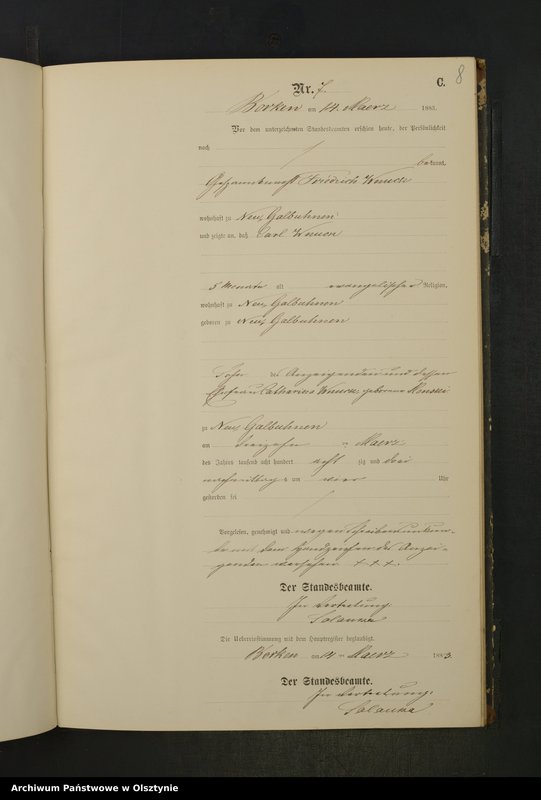 C. 8
Nr. 7.
Borken am 14. Maerz 1883.
Vor dem unterzeichneten Standesbeamten erschien heute, der Persönlichkeit
nach
bekannt,
Friedrich
wohnhaft zu Neu Galbuhnen
und zeigte an, daß Carl
5 Monate alt evangelischer Religion,
wohnhaft zu Neu Galbuhnen
geboren zu Neu Galbuhnen
Sohn des Anzeigenden und dessen
Ehefrau Catharina geborene
zu Neu Galbuhnen
am dreizehn ten Maerz
des Jahres tausend acht hundert acht zig und drei
nachmittags um vier Uhr
gestorben sei
Vorgelesen, genehmigt und wegen Schreibensunkun-
de mit dem Handzeichen des Anzei-
genden versehen + + +.
Der Standesbeamte.
In Vertretung
Die Uebereinstimmung mit dem Hauptregister beglaubigt.
Borken am 14 ten Maerz 1883.
Der Standesbeamte.
In Vertretung.
Archiwum Państwowe w Olsztynie